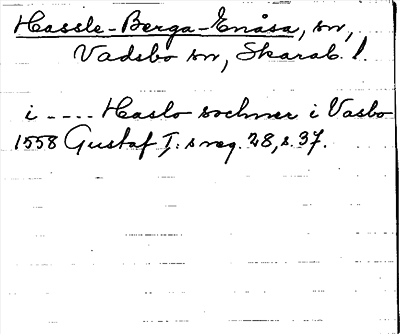 Hassle-Berga-Enåsa, sn,
Vadsbo sn, Skarab. l.
i .... Haslo sochner i Vasbo
1558 Gustaf I:s reg. 28, s. 37.